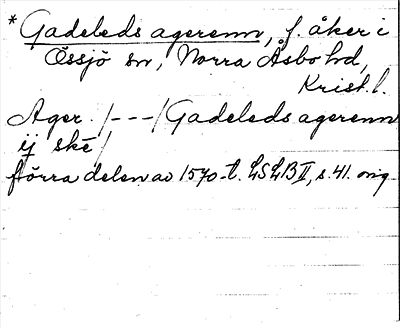 * Gadeleds agerenn, f. åker i
Össjö sn, Norra Åsbo hd,
Krist. l.
Ager /---/ Gadeleds agerenn
ij skē /
förra delen av 1570-t. LSLB II, s. 41. orig.